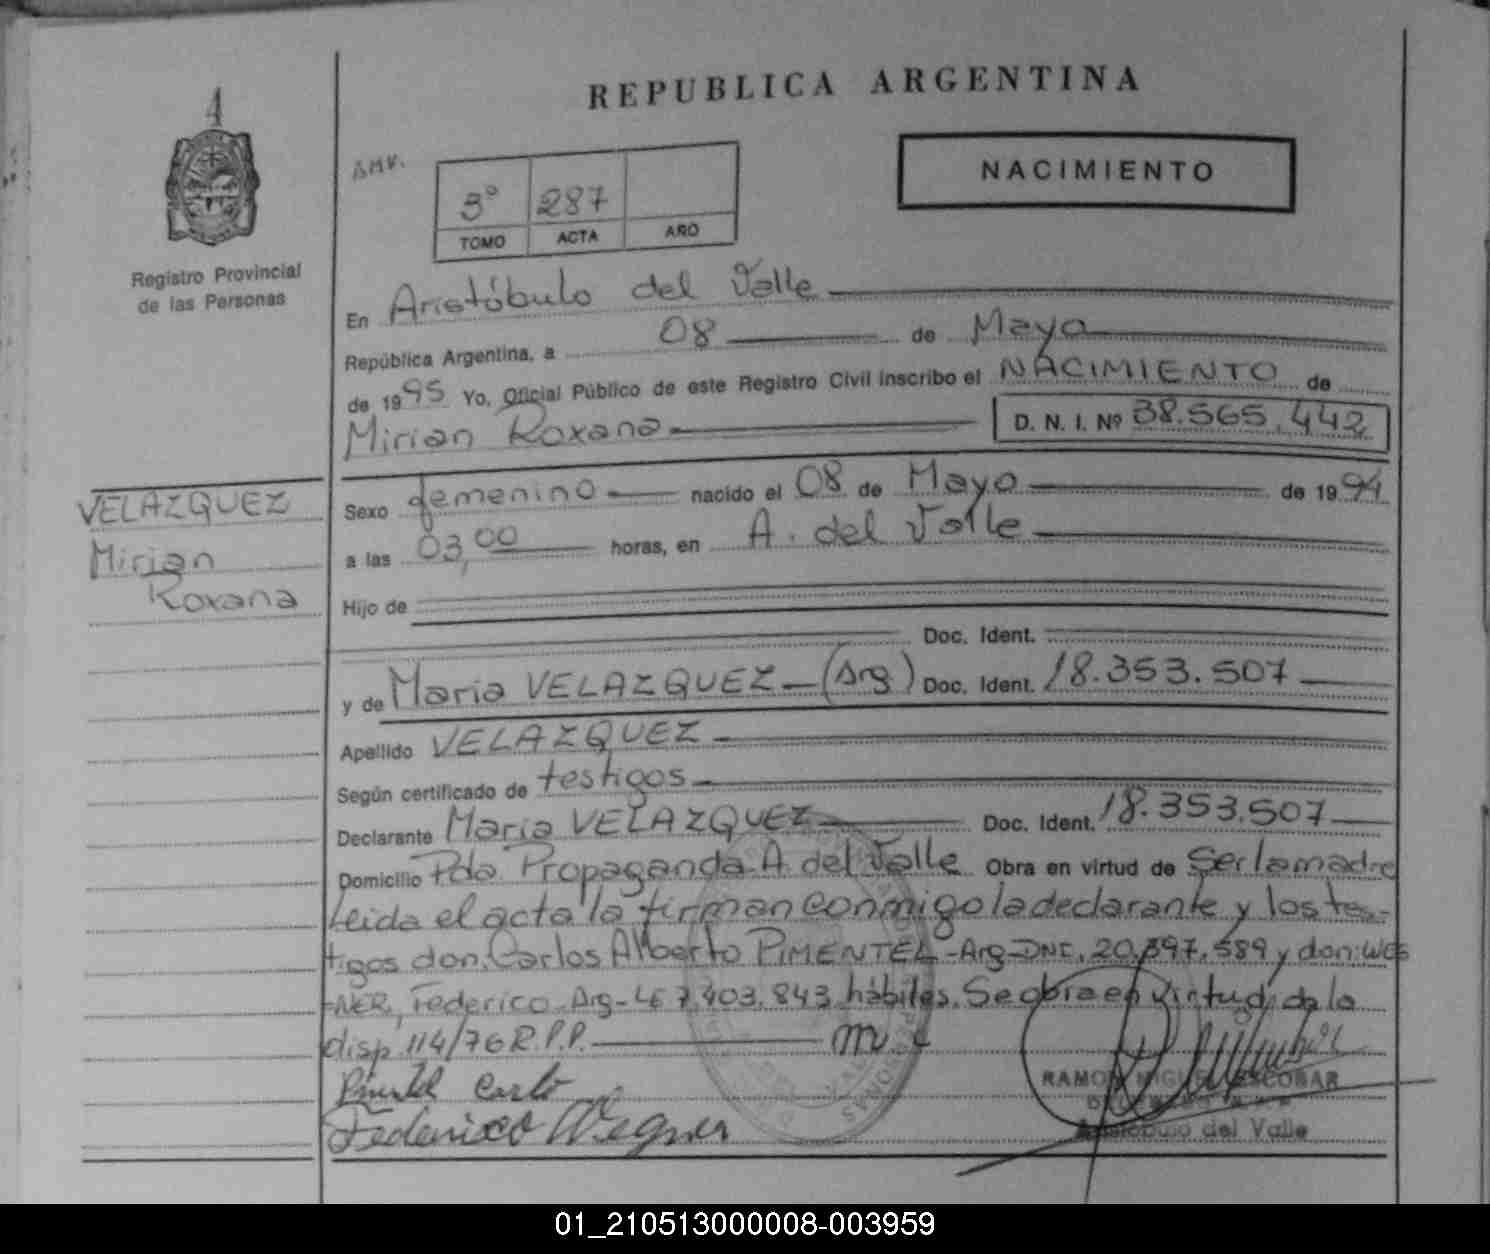 4
REPUBLICA ARGENTINA
Registro Provincial
de las Personas
AMV.
3º 287
TOMO ACTA AÑO
NACIMIENTO
En Aristóbulo del Valle
República Argentina, a 08 de Mayo
de 1995 Yo, Oficial Público de este Registro Civil inscribo el NACIMIENTO de
Mirian Roxana D. N. I. Nº 38.565.442
VELAZQUEZ
Mirian
Roxana
Sexo femenino nacido el 08 de Mayo de 1994
a las 03,00 horas, en A. del Valle
Hijo de
Doc. Ident.
y de Maria VELAZQUEZ (Arg) Doc. Ident. 18.353.507
Apellido VELAZQUEZ
Según certificado de testigos
Declarante Maria VELAZQUEZ Doc. Ident. 18.353.507
Domicilio Pdo Propaganda A. del Valle Obra en virtud de Ser la madre
Leida el acta la firman conmigo la declarante y los tes-
tigos don: Carlos Alberto PIMENTEL - Arg - DNI. 20.397.589 y don: WEG
-NER, Federico - Arg - LE 7.403.843 hábiles. Se obra en virtud de la
disp. 114/76 R.P.P.
Pimentel Carlo
Federico Wegner
RAMON MIGUEL ESCOBAR
Aristóbulo del Valle
01_210513000008-003959